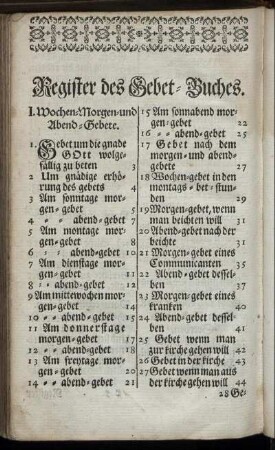 Register des Gebet-Buches.
I. Wochen-Morgen-und
Abend-Gebete.
1. Gebet um die gnade
GOtt wolge-
fällig zu beten 3
2 Um gnädige erhö-
rung des gebets 4
3 Am sonntage mor-
gen-gebet 5
4 = = abend-gebet 7
5 Am montage mor-
gen-gebet 8
6 = = abend-gebet 10
7 Am dienstage mor-
gen-gebet 11
8 = = abend-gebet 12
9 Am mittewochen mor-
gen-gebet 14
10 = = abend-gebet 15
11 Am donnerstage
morgen-gebet 17
12 = = abend-gebet 18
13 Am freytage mor-
gen-gebet 20
14 = = abend-gebet 21
15 Am sonnabend mor-
gen-gebet 22
16 = = abend-gebet 25
17 Gebet nach dem
morgen-und abend-
gebete 27
18 Wochen-gebet in den
montags-bet-stun-
den 29
19 Morgen-gebet, wenn
man beichten will 31
20 Abend-gebet nach der
beichte 31
21 Morgen-gebet eines
Communicanten 35
22 Abend-gebet dessel-
ben 37
23 Morgen-gebet eines
kranken 40
24 Abend-gebet dessel-
ben 41
25 Gebet wenn man
zur kirche gehen will 42
26 Gebet in der kirche 43
27 Gebet wenn man aus
der kirche gehen will 44
28 Ge-